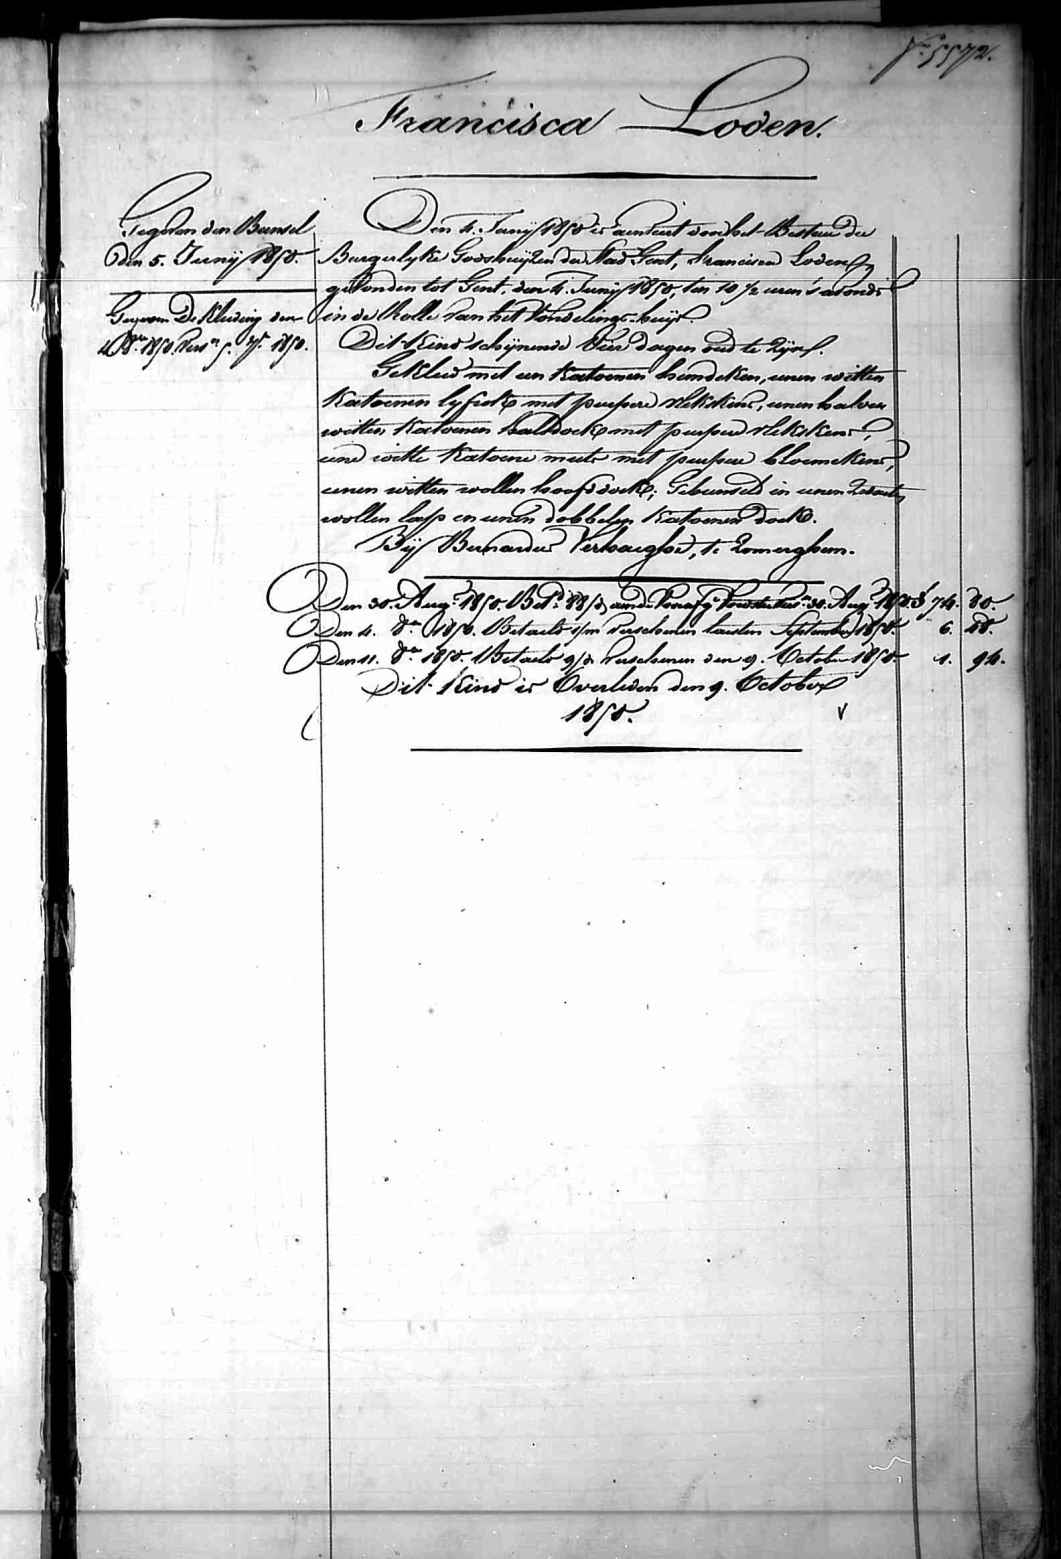 N.° 5572.
Francisca Loden.
Gegeven den Bunsel
den 5. Junij 1850.
Gegeven De Kleeding den
4. 8.bre 1850
Den 4. Junij 1850 is aenveert door het Bestuer der
Burgerlyke Godshuijzen der Stad Gent, Francisca Loden,
gevonden tot Gent, den 4. Junij 1850, ten 10 1/2 uren 's avonds
in de Rolle van het Vondelings-huijs.
Dit Kind schynende vier dagen oud te Zijn.
Gekleed met een Katoenen hemdeken, eenen witten
Katoenen lyfrok met purpere vlekskens, eenen halven
witten Katoenen halsdoek met purpere vlekskens,
eene witte Katoene muts met purpere bloemekens,
eenen witten wollen hoofddoek; Gebunseld in eenen Zwarten
wollen lap en eenen dobbelen Katoenen doek.
Bij Bernardus Verhaeghe, te Zomerghem.
Den 30. Aug.t 1850. Bet.d 30. Aug.t 1850. 74. 80.
Den 4. 8.bre 1850. Betaeld 1/m verschenen laesten September 1850. 6. 28.
Den 11. 8.bre 1850. Betaeld 9/d verschenen den 9. October 1850 1. 94.
Dit Kind is Overleden den 9. October
1850.